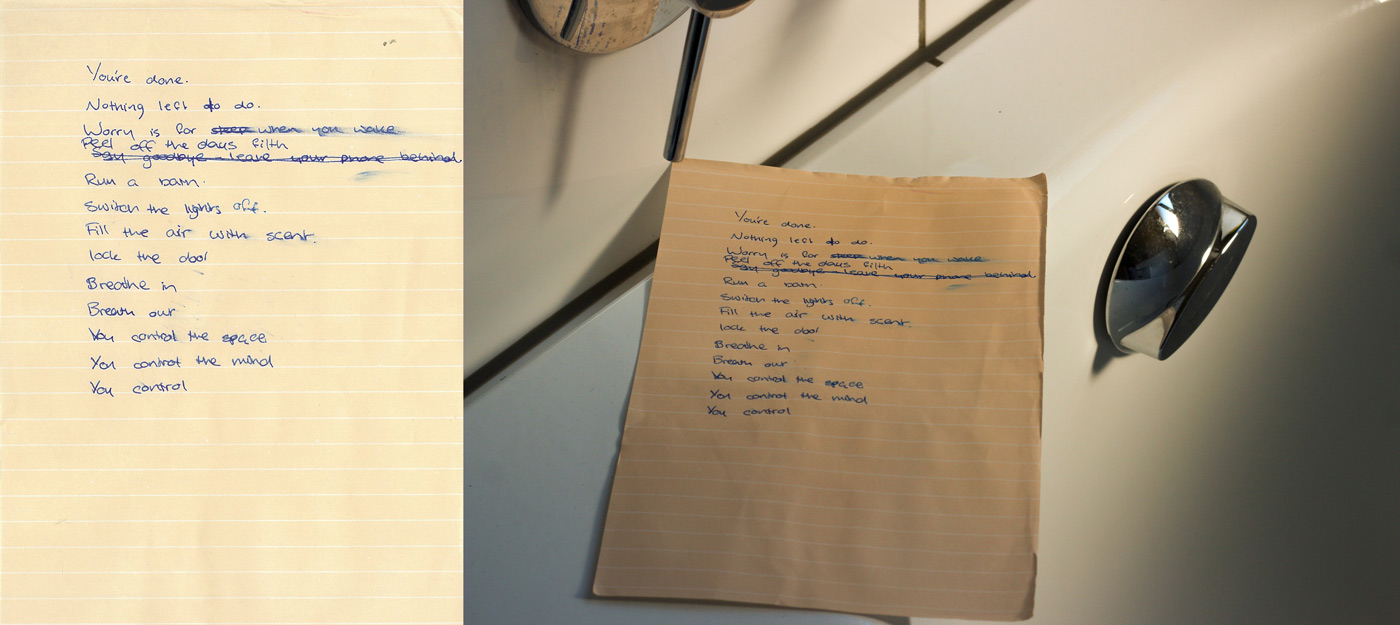 You're done.
Nothing left to do.
Worry is for sleep when you wake
Peel off the days filth
Say goodbye - leave your phone behind
Run a bath.
Switch the lights off.
Fill the air with scent.
lock the door
Breathe in
Breath out
You control the space
You control the mind
You control
You're done.
Nothing left to do.
Worry is for sleep when you wake
Peel off the days filth
Say goodbye - leave your phone behind
Run a bath.
Switch the lights off.
Fill the air with scent.
lock the door
Breathe in
Breath out
You control the space
You control the mind
You control